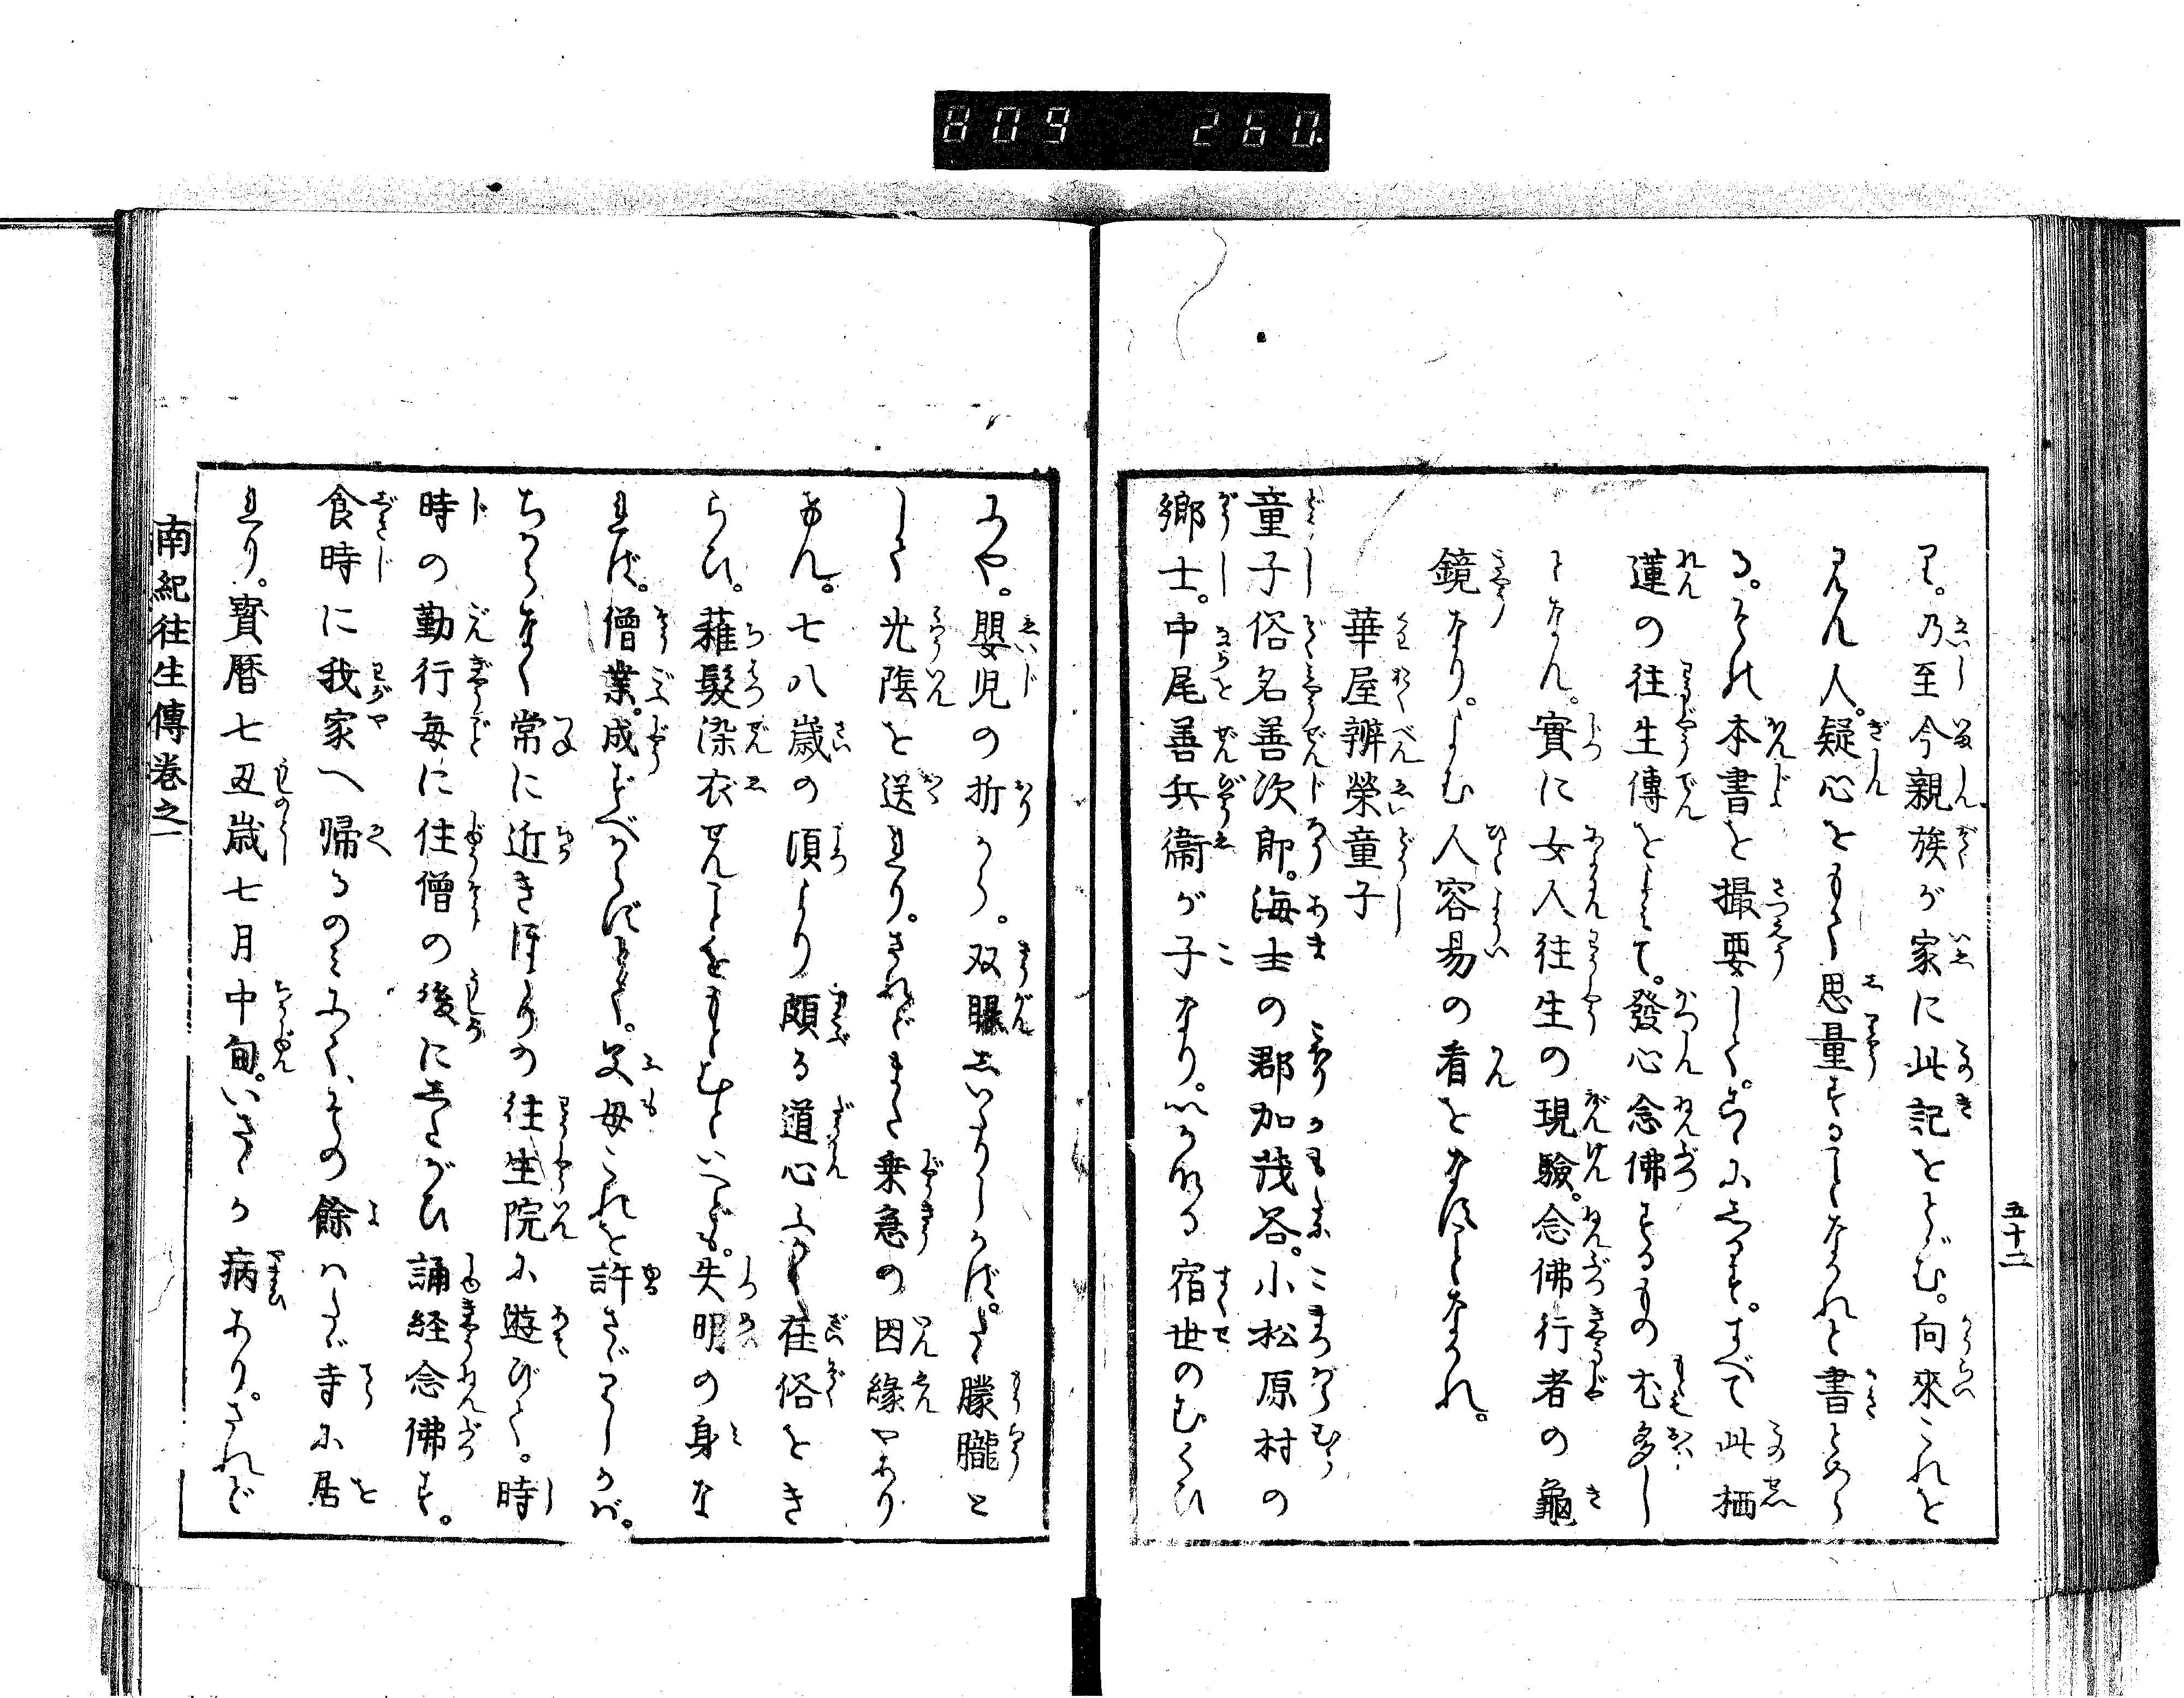 809 260
五十二
て。乃至今親族が家に此記をとゞむ。向來これを
見ん人。疑心をもて思量することなかれと書とめら
る。それ本書を撮要して。こゝにしるす。すべて此栖
蓮の往生傳をよみて。發心念佛するもの尤多し
となん。實に女人往生の現驗。念佛行者の龜
鏡なり。よむ人容易の看をなすことなかれ。
華屋辨榮童子
童子俗名善次郎。海士の郡加茂谷。小松原村の
郷士。中尾善兵衞が子なり。いかなる宿世のむくひ
にや。嬰児の折から。双矑しいたりしかば。たゞ朦朧と
して光陰を送れり。されどまた乗急の因緣やあり
けん。七八歲の頃より頗る道心ふかく在俗をき
らひ。薙髮染衣せんことをもとむといへども。失明の身な
れば。僧業。成ずべからずとて。父母これを許さゞりしかば。
ちからなく常に近きほとりの往生院に遊びて。時
時の勤行每に住僧の後にしたがひ誦経念佛す。
食時に我家へ帰るのみにて、その餘ハたゞ寺に居
れり。寶暦七丑歳七月中旬。いさゝか病あり。されど
南紀往生傳卷之一